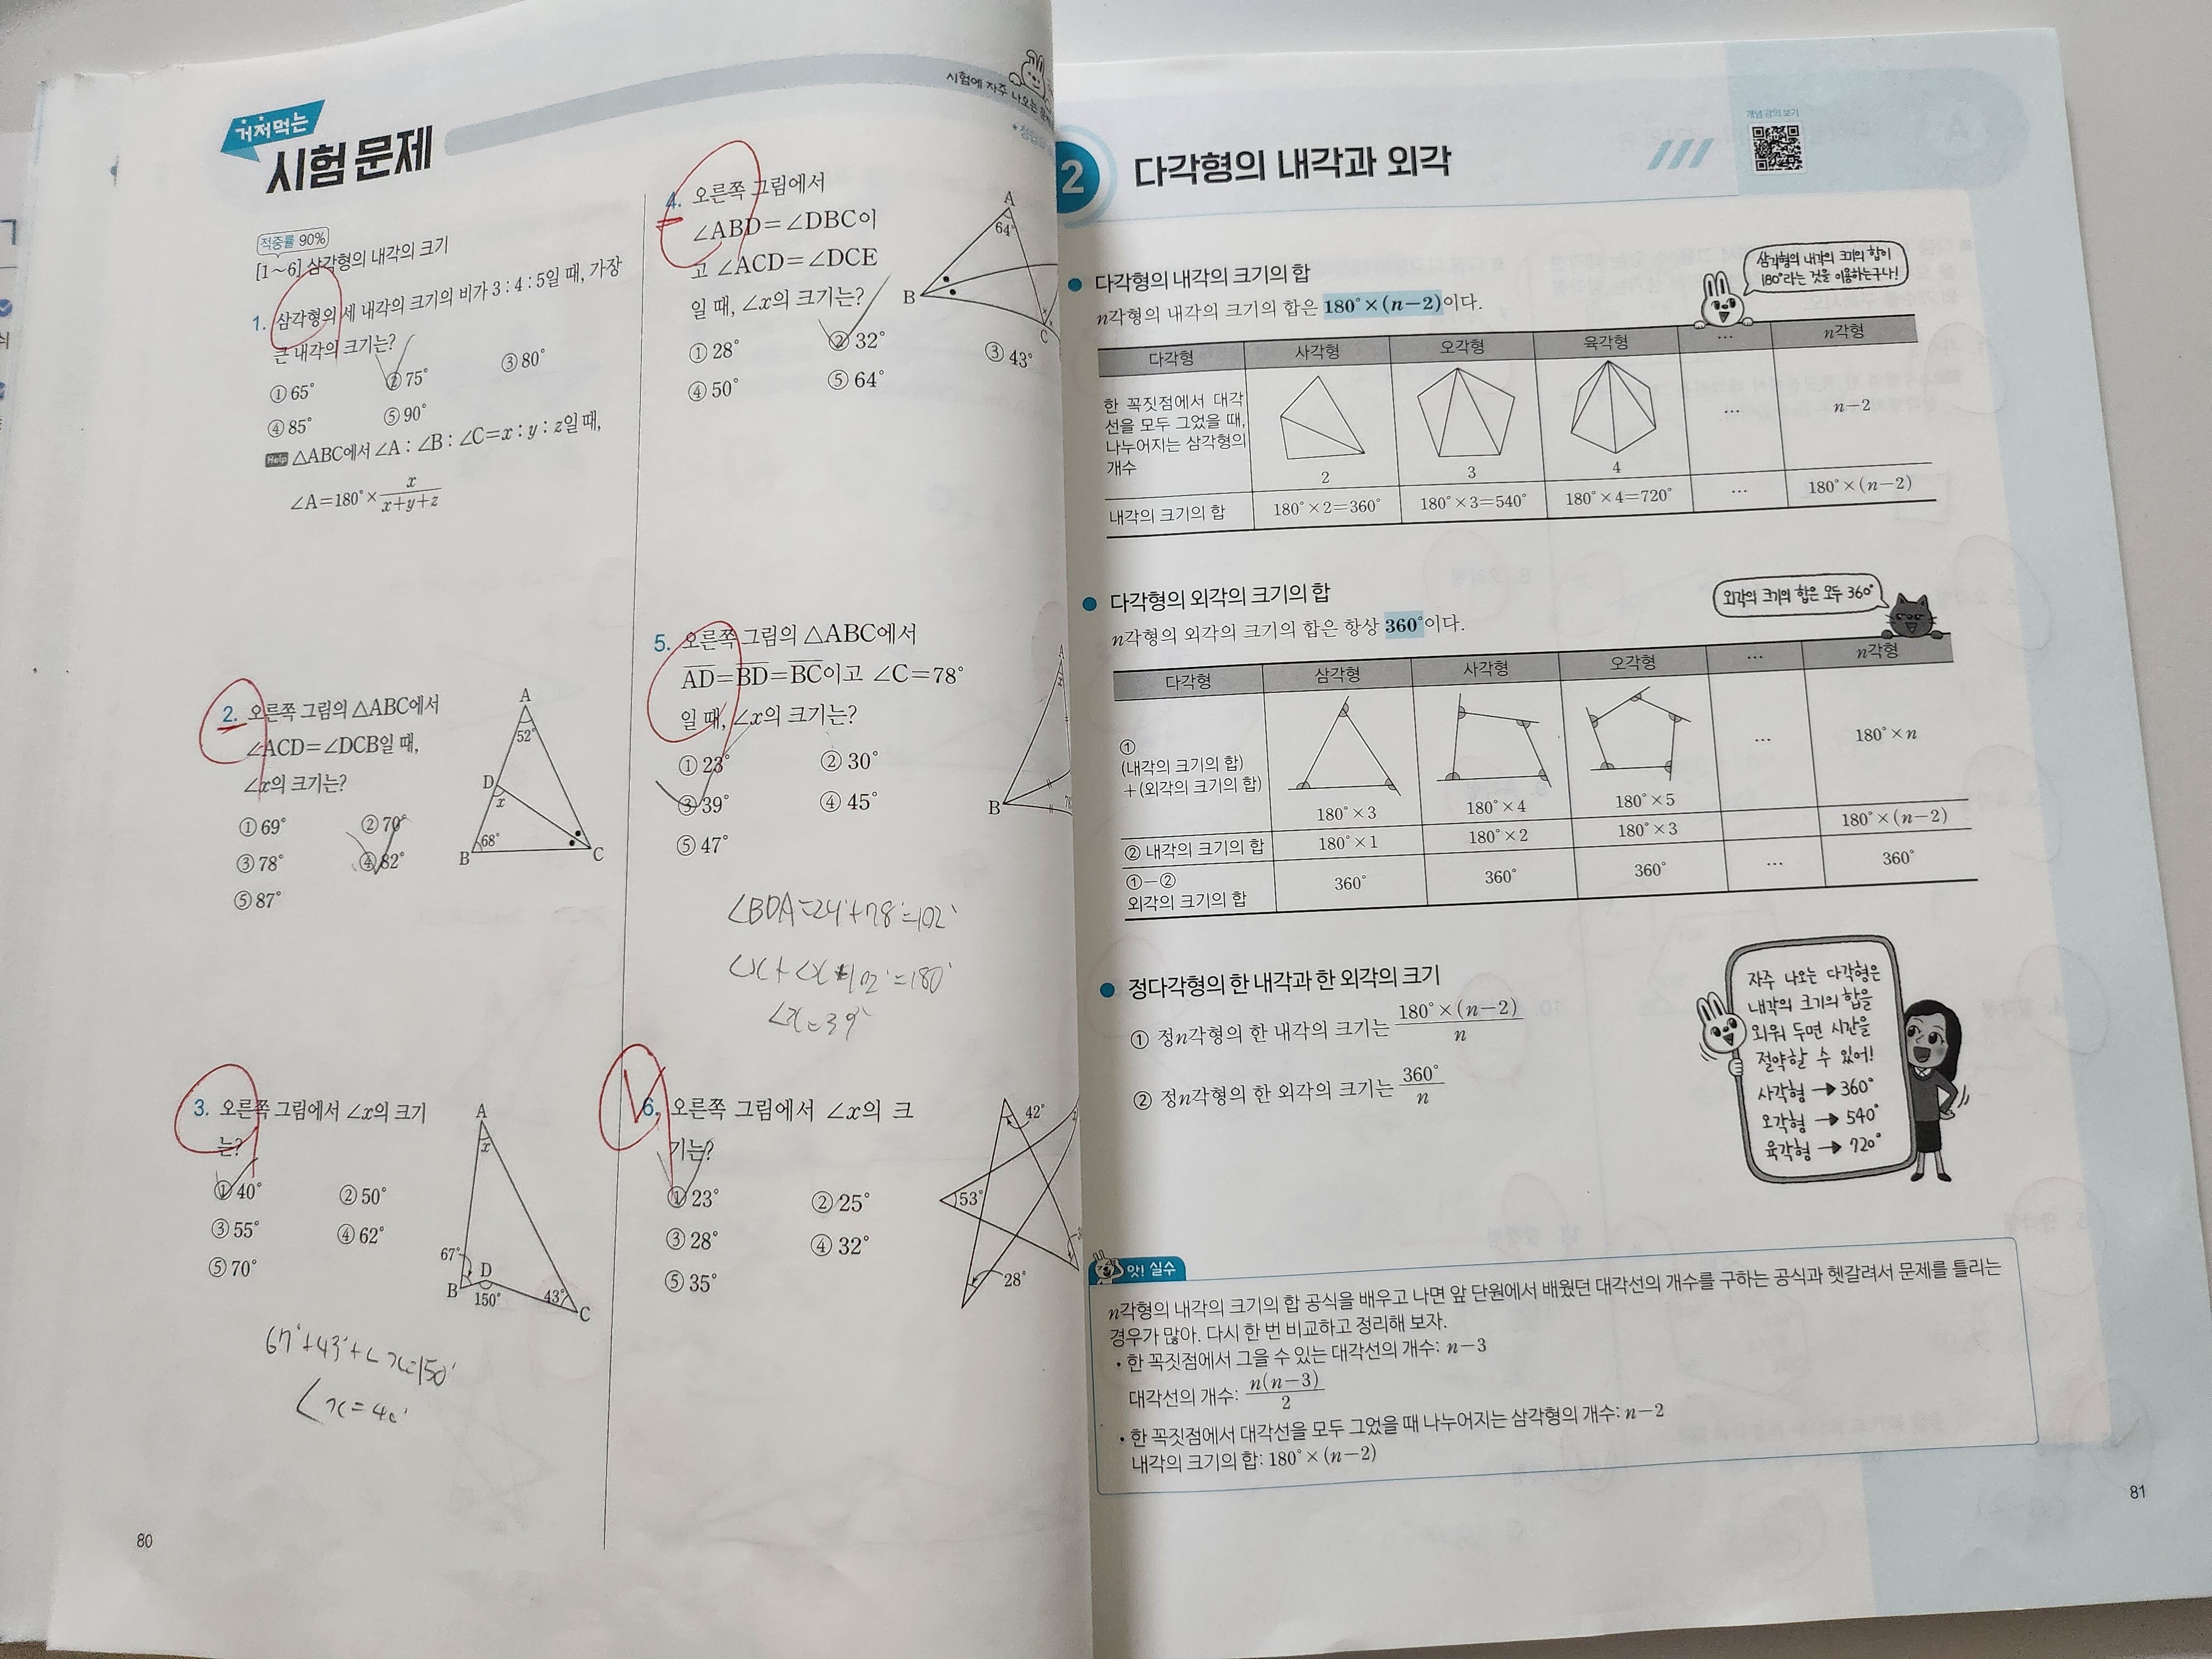 거저먹는
시험 문제
시험에 자주 나오는 문제
적중률 90%
[1~6] 삼각형의 내각의 크기
1. 삼각형의 세 내각의 크기의 비가 3 : 4 : 5일 때, 가장
큰 내각의 크기는?
① 65° ② 75° ③ 80°
④ 85° ⑤ 90°
Help △ABC에서 ∠A : ∠B : ∠C=x : y : z일 때,
∠A=180°× x/(x+y+z)
2. 오른쪽 그림의 △ABC에서
∠ACD=∠DCB일 때,
∠x의 크기는?
① 69° ② 70°
③ 78° ④ 82°
⑤ 87°
A
52°
D
x
68°
B
C
3. 오른쪽 그림에서 ∠x의 크기
는?
① 40° ② 50°
③ 55° ④ 62°
⑤ 70°
A
x
67°
B D
150° 43° C
67°+43°+∠x=150°
∠x=40°
80
4. 오른쪽 그림에서
∠ABD=∠DBC이
고 ∠ACD=∠DCE
일 때, ∠x의 크기는?
① 28° ② 32° ③ 43°
④ 50° ⑤ 64°
A
64°
B
C
5. 오른쪽 그림의 △ABC에서
AD=BD=BC이고 ∠C=78°
일 때, ∠x의 크기는?
① 23° ② 30°
③ 39° ④ 45°
⑤ 47°
A
B
∠BDA=24°+78°=102°
∠x+∠x+102°=180°
∠x=39°
6. 오른쪽 그림에서 ∠x의 크
기는?
① 23° ② 25°
③ 28° ④ 32°
⑤ 35°
42°
53°
28°
2 다각형의 내각과 외각
개념 강의 보기
다각형의 내각의 크기의 합
n각형의 내각의 크기의 합은 180°×(n-2)이다.
삼각형의 내각의 크기의 합이
180°라는 것을 이용하는구나!
다각형 사각형 오각형 육각형 … n각형
한 꼭짓점에서 대각
선을 모두 그었을 때,
나누어지는 삼각형의
개수
2 3 4 … n-2
내각의 크기의 합 180°×2=360° 180°×3=540° 180°×4=720° … 180°×(n-2)
다각형의 외각의 크기의 합
n각형의 외각의 크기의 합은 항상 360°이다.
외각의 크기의 합은 모두 360°
다각형 삼각형 사각형 오각형 … n각형
①
(내각의 크기의 합)
+(외각의 크기의 합)
180°×3 180°×4 180°×5 … 180°×n
② 내각의 크기의 합 180°×1 180°×2 180°×3 180°×(n-2)
①-②
외각의 크기의 합
360° 360° 360° … 360°
정다각형의 한 내각과 한 외각의 크기
① 정n각형의 한 내각의 크기는 180°×(n-2)/n
② 정n각형의 한 외각의 크기는 360°/n
자주 나오는 다각형은
내각의 크기의 합을
외워 두면 시간을
절약할 수 있어!
사각형 → 360°
오각형 → 540°
육각형 → 720°
앗! 실수
n각형의 내각의 크기의 합 공식을 배우고 나면 앞 단원에서 배웠던 대각선의 개수를 구하는 공식과 헷갈려서 문제를 틀리는
경우가 많아. 다시 한 번 비교하고 정리해 보자.
• 한 꼭짓점에서 그을 수 있는 대각선의 개수: n-3
대각선의 개수: n(n-3)/2
• 한 꼭짓점에서 대각선을 모두 그었을 때 나누어지는 삼각형의 개수: n-2
내각의 크기의 합: 180°×(n-2)
81